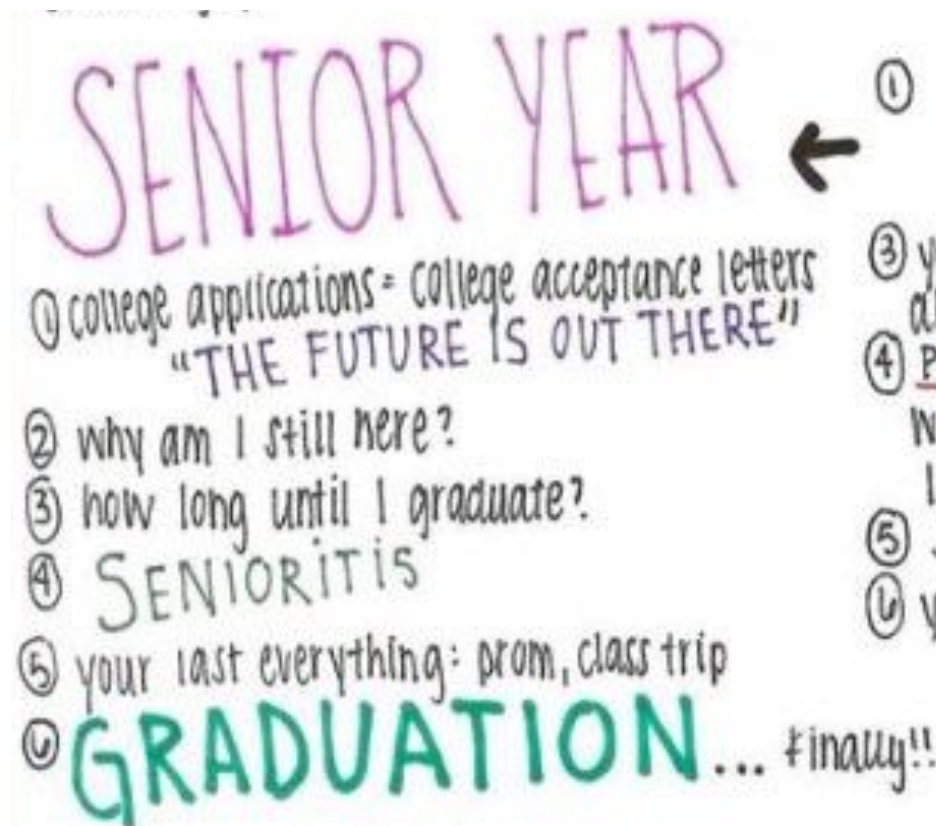 SENIOR YEAR ←
① college applications = college acceptance letters
"THE FUTURE IS OUT THERE"
② why am I still here?
③ how long until I graduate?
④ SENIORITIS
⑤ your last everything: prom, class trip
⑥ GRADUATION... finally!!
①
③
④
⑤
⑥